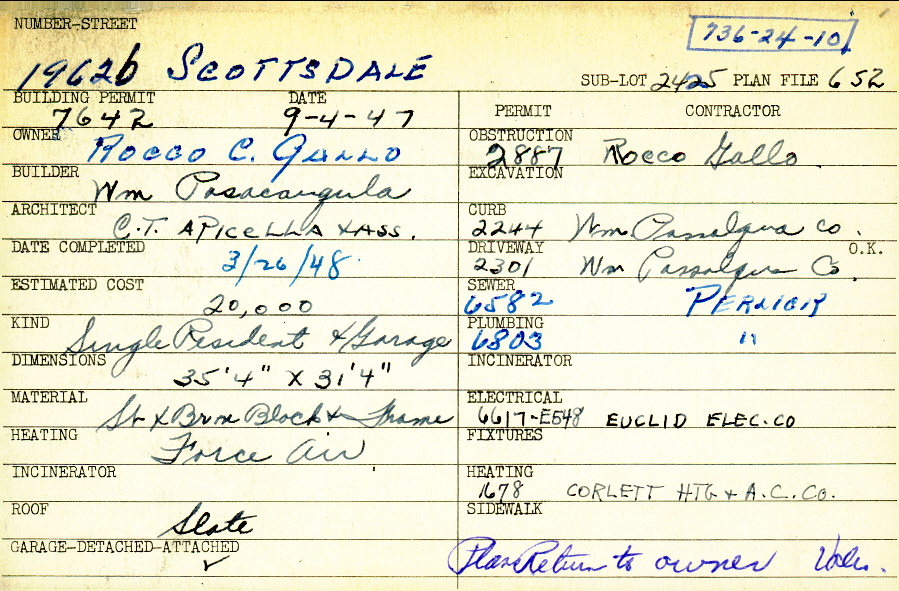 NUMBER-STREET
736-24-10
19626 SCOTTSDALE
SUB-LOT 2425 PLAN FILE 652
BUILDING PERMIT DATE
7642 9-4-47
PERMIT CONTRACTOR
OWNER Rocco C. Gallo
OBSTRUCTION 2887 Rocco Gallo
BUILDER Wm
EXCAVATION
ARCHITECT C.T. APICELLA & ASS.
CURB 2244 Wm Co.
DATE COMPLETED 3/26/48
DRIVEWAY 2301 Wm Co. O.K.
ESTIMATED COST 20,000
SEWER 6582
KIND Single Resident & Garage
PLUMBING 6803 "
DIMENSIONS 35'4" X 31'4"
INCINERATOR
MATERIAL St & Brk Block & Frame
ELECTRICAL 6617-E548 EUCLID ELEC. CO
HEATING Force Air
FIXTURES
INCINERATOR
HEATING 1678 CORLETT HTG & A.C. CO.
ROOF Slate
SIDEWALK
GARAGE-DETACHED-ATTACHED ✓
Plans Return to owner